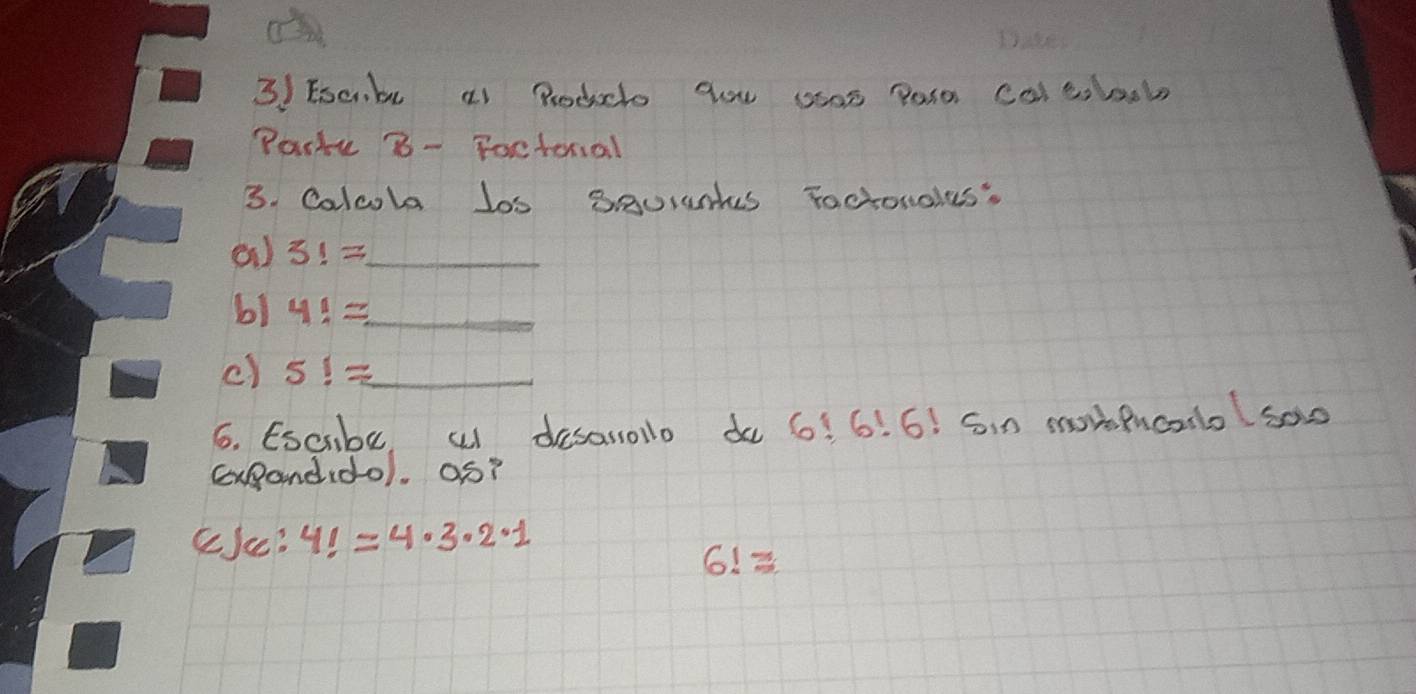 Date:
3) Escribe el Producto que usas Para calcularlo
Parte B - Factorial
3. Calcula los siguientes Factoriales:
a) 3! = ______
b) 4! = ______
c) 5! = ______
6. Escribe el desarrollo de 6! 6! 6! Sin multiplicarlo (solo
expandido). así
eje: 4! = 4·3·2·1
6! =